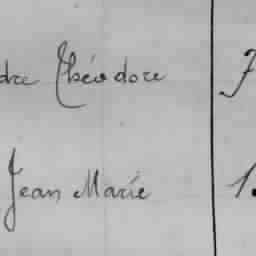 dre Théodore
Jean Marie 1